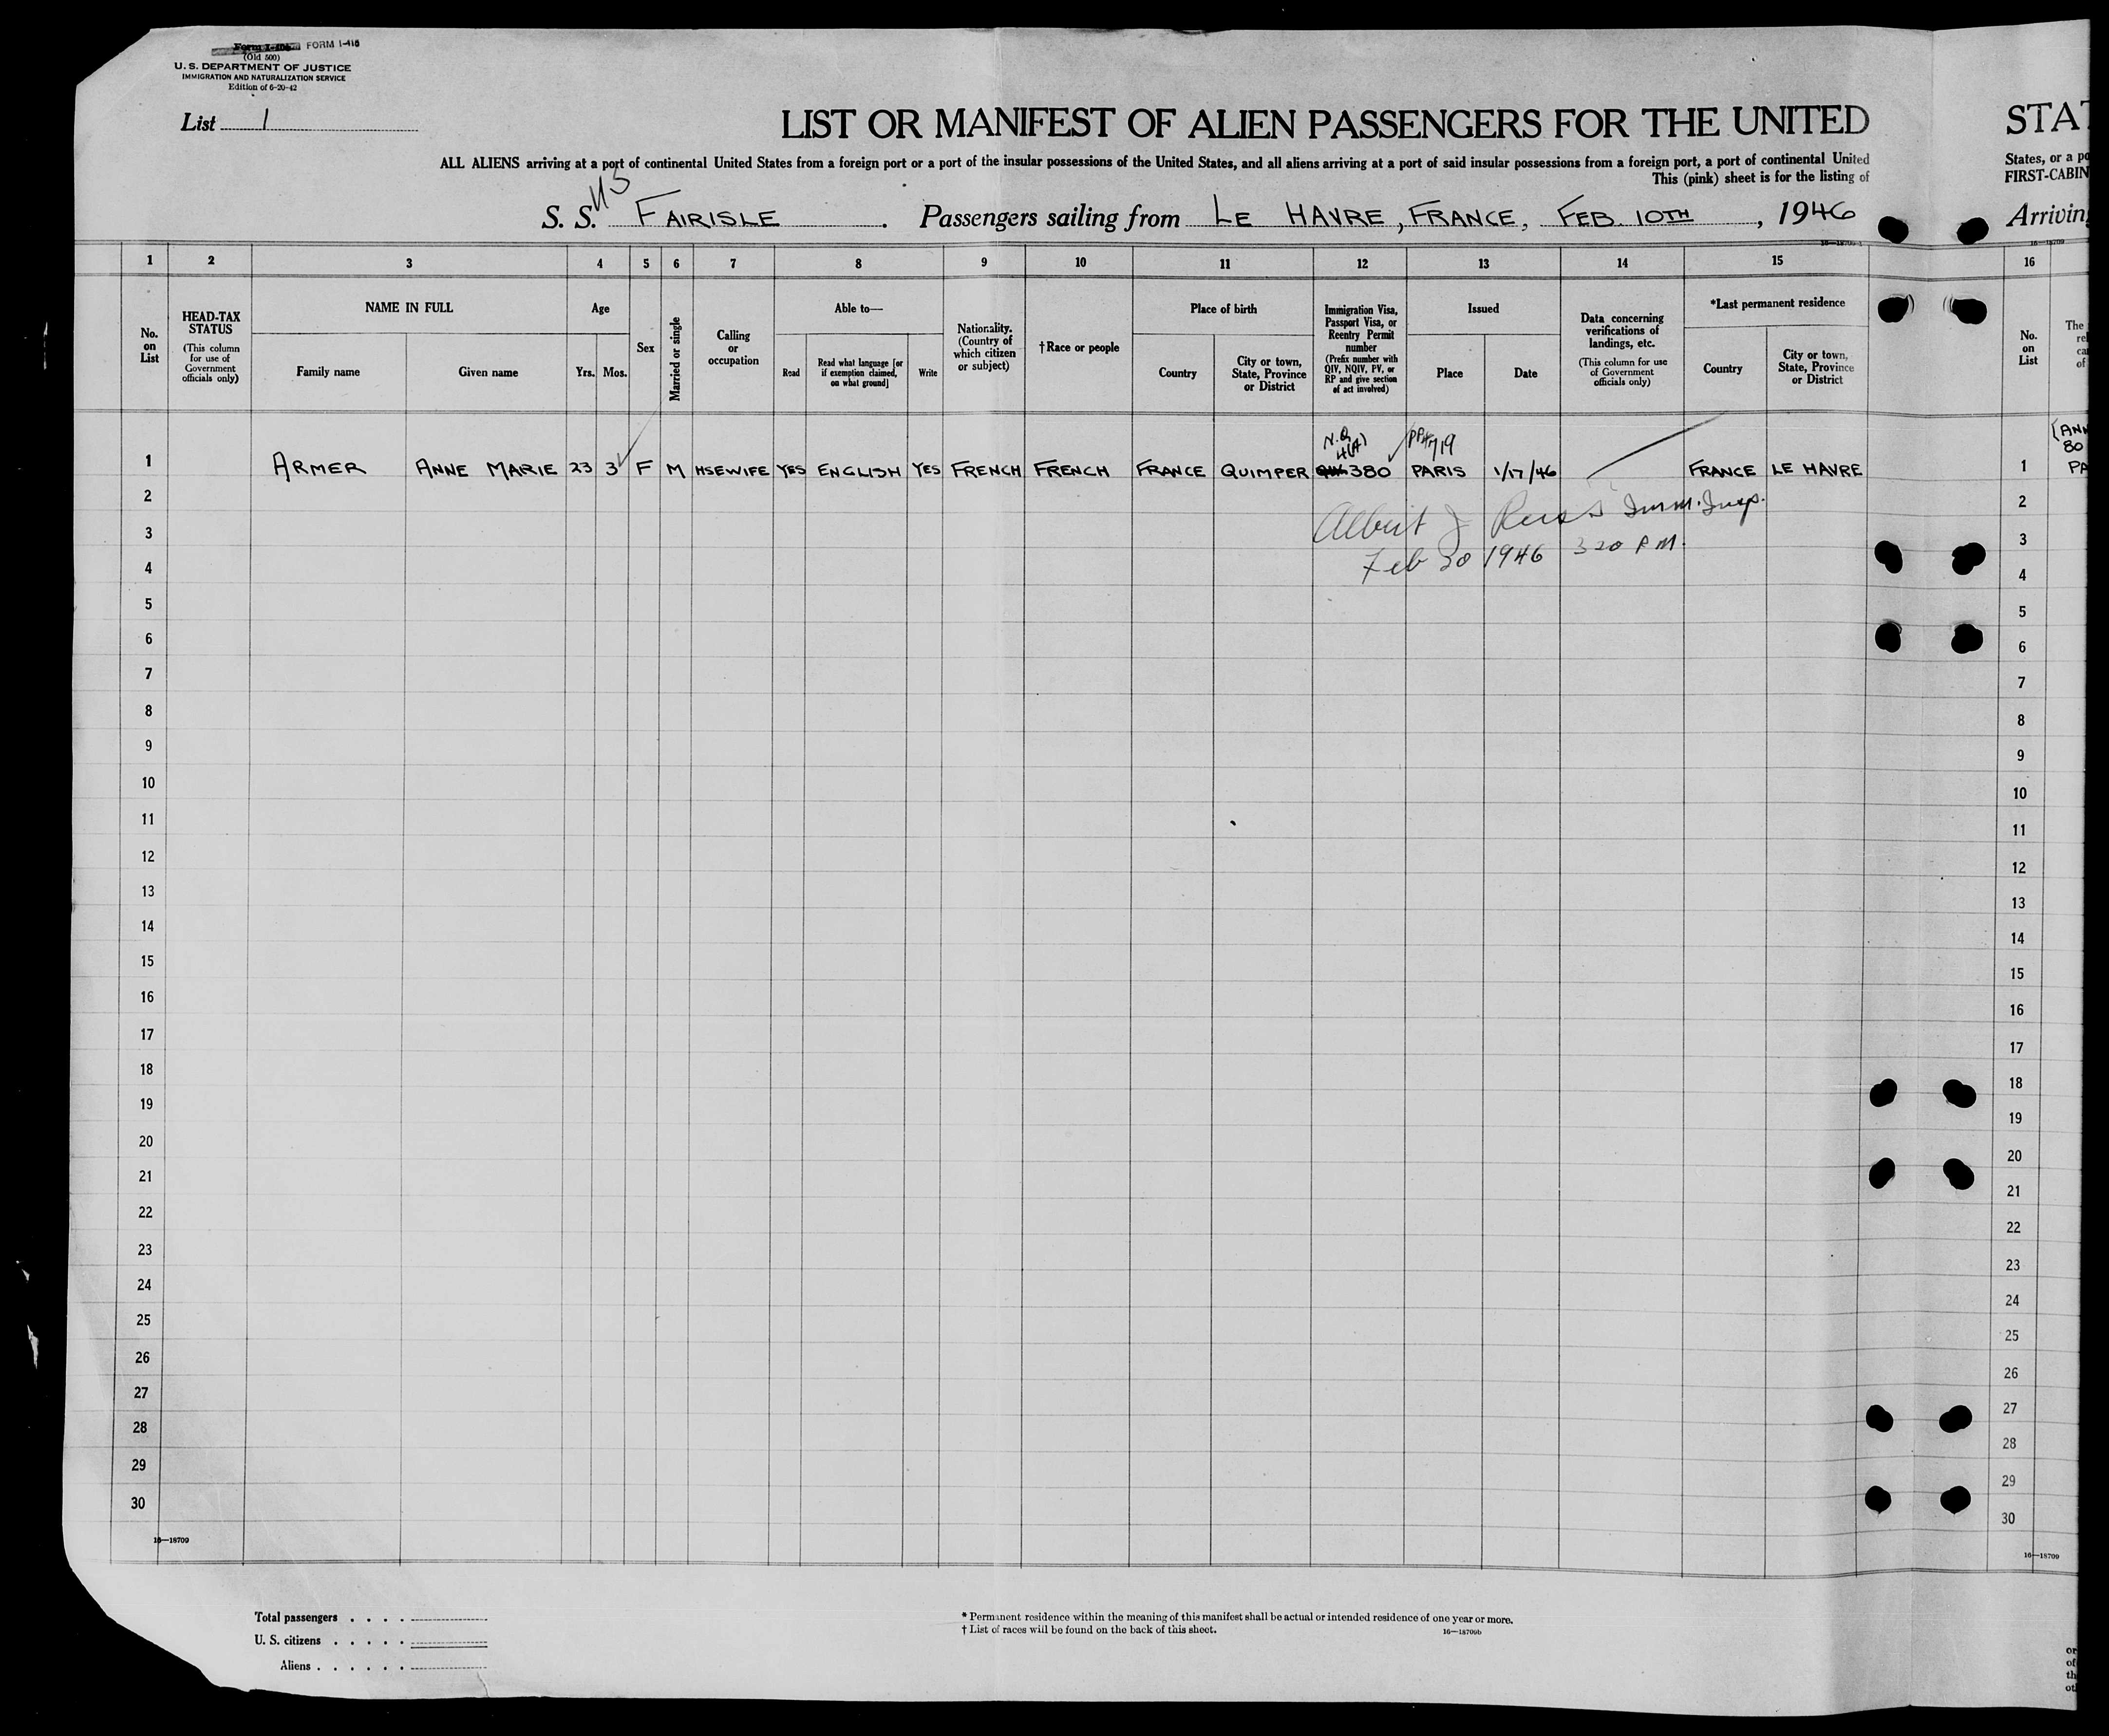 Form I-404 FORM I-415
(Old 500)
U. S. DEPARTMENT OF JUSTICE
IMMIGRATION AND NATURALIZATION SERVICE
Edition of 6-20-42
List 1
LIST OR MANIFEST OF ALIEN PASSENGERS FOR THE UNITED
STAT
ALL ALIENS arriving at a port of continental United States from a foreign port or a port of the insular possessions of the United States, and all aliens arriving at a port of said insular possessions from a foreign port, a port of continental United
States, or a po
This (pink) sheet is for the listing of
FIRST-CABIN
S. S. FAIRISLE . Passengers sailing from LE HAVRE, FRANCE, FEB. 10TH, 1946
Arriving
16—18709
1 2 3 4 5 6 7 8 9 10 11 12 13 14 15 16
No. on List
HEAD-TAX STATUS
(This column for use of Government officials only)
NAME IN FULL
Family name
Given name
Age
Yrs. Mos.
Sex
Married or single
Calling or occupation
Able to—
Read
Read what language [or if exemption claimed, on what ground]
Write
Nationality. (Country of which citizen or subject)
†Race or people
Place of birth
Country
City or town, State, Province or District
Immigration Visa, Passport Visa, or Reentry Permit number
(Prefix number with QIV, NQIV, PV, or RP and give section of act involved)
Issued
Place
Date
Data concerning verifications of landings, etc.
(This column for use of Government officials only)
*Last permanent residence
Country
City or town, State, Province or District
No. on List
The
N.Q. 4(A)
PP#719
1 ARMER ANNE MARIE 23 3 F M HSEWIFE YES ENGLISH YES FRENCH FRENCH FRANCE QUIMPER 380 PARIS 1/17/46 FRANCE LE HAVRE
(ANN
80
1 PA
Albert J Imm. Insp.
Feb 20 1946 3 20 P.M.
2 2
3 3
4 4
5 5
6 6
7 7
8 8
9 9
10 10
11 11
12 12
13 13
14 14
15 15
16 16
17 17
18 18
19 19
20 20
21 21
22 22
23 23
24 24
25 25
26 26
27 27
28 28
29 29
30 30
16—18709
16—18709
Total passengers . . . .
U. S. citizens . . . . .
Aliens . . . . . .
* Permanent residence within the meaning of this manifest shall be actual or intended residence of one year or more.
† List of races will be found on the back of this sheet.
16—18709b
or
of
th
ot